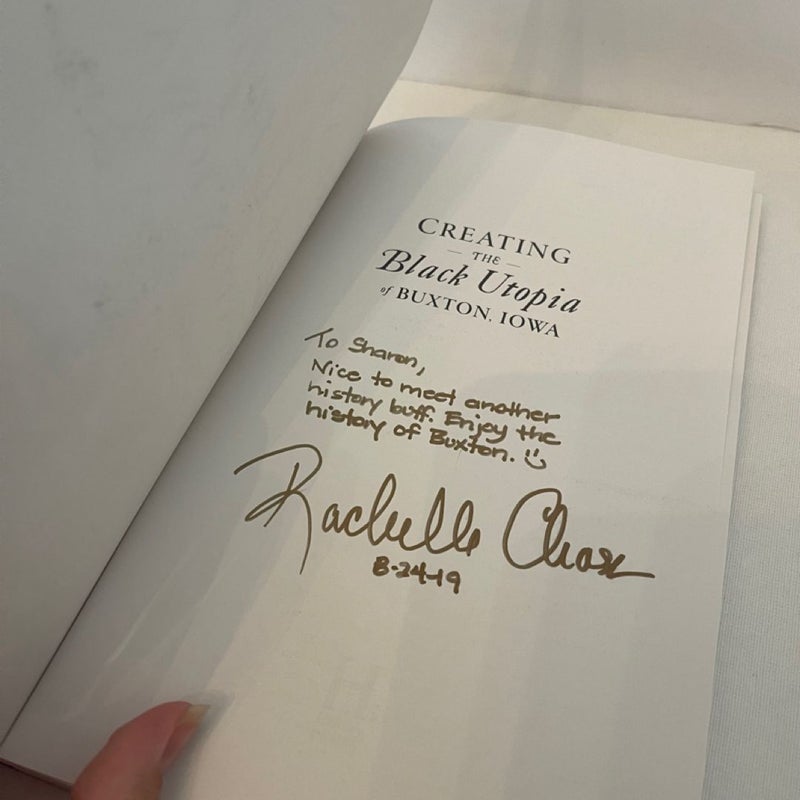 CREATING
— THE —
Black Utopia
of BUXTON, IOWA
To Sharon,
Nice to meet another
history buff. Enjoy the
history of Buxton. :)
Rachelle Chase
8-24-19